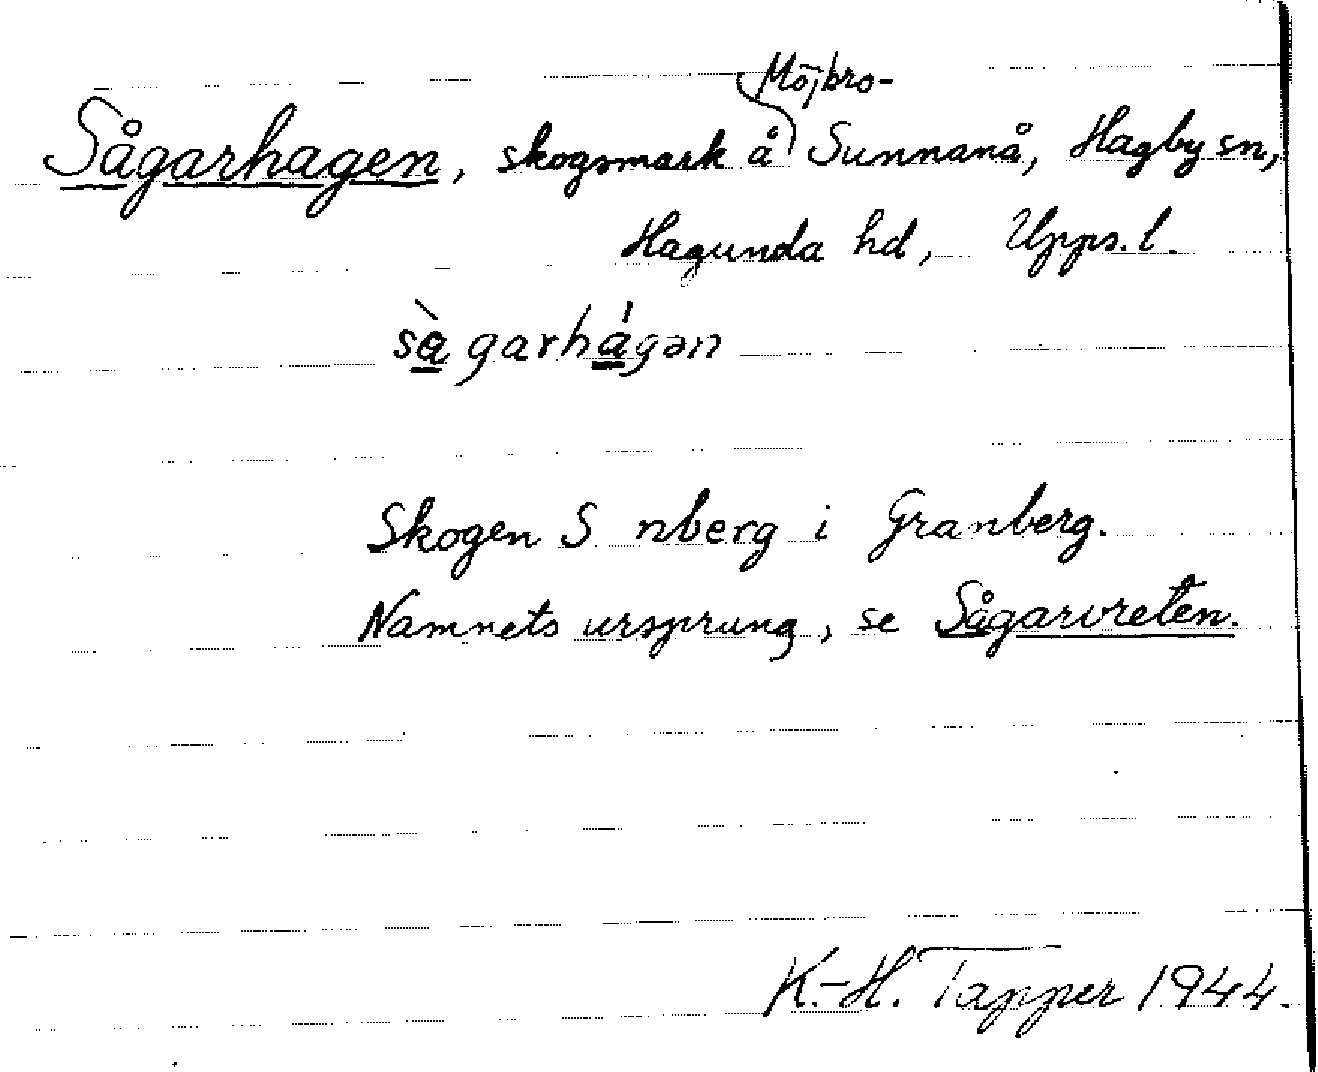 Möjbro-
Sågarhagen, skogsmark å Sunnanå, Hagby sn,
Hagunda hd, Upps. l.
sà̱garhá̱gən
Skogen S nberg i Granberg.
Namnets ursprung, se Sågarvreten.
K.-H. Tapper 1944.